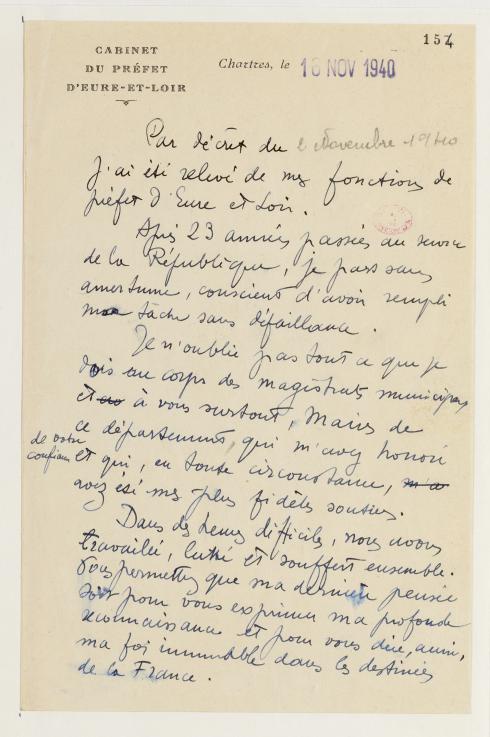 154
CABINET
DU PRÉFET
D'EURE-ET-LOIR
Chartres, le 16 NOV 1940
Par décret du 2 Novembre 1940
j'ai été relevé de mes fonctions de
préfet d'Eure et Loir.
Après 23 années passées au service
de la République, je pars sans
amertume, conscient d'avoir rempli
ma tâche sans défaillance.
Je n'oublie pas tout ce que je
dois au corps des magistrats municipaux
et au à vous surtout, Maires de
ce département, qui m'avez honoré
de votre
confiance
et qui, en toute circonstance, m'a
avez été mes plus fidèles soutiens.
Dans des heures difficiles, nous avons
travaillé, lutté et souffert ensemble.
Vous permettez que ma dernière pensée
soit pour vous exprimer ma profonde
reconnaissance et pour vous dire, aussi,
ma foi immuable dans les destinées
de la France.